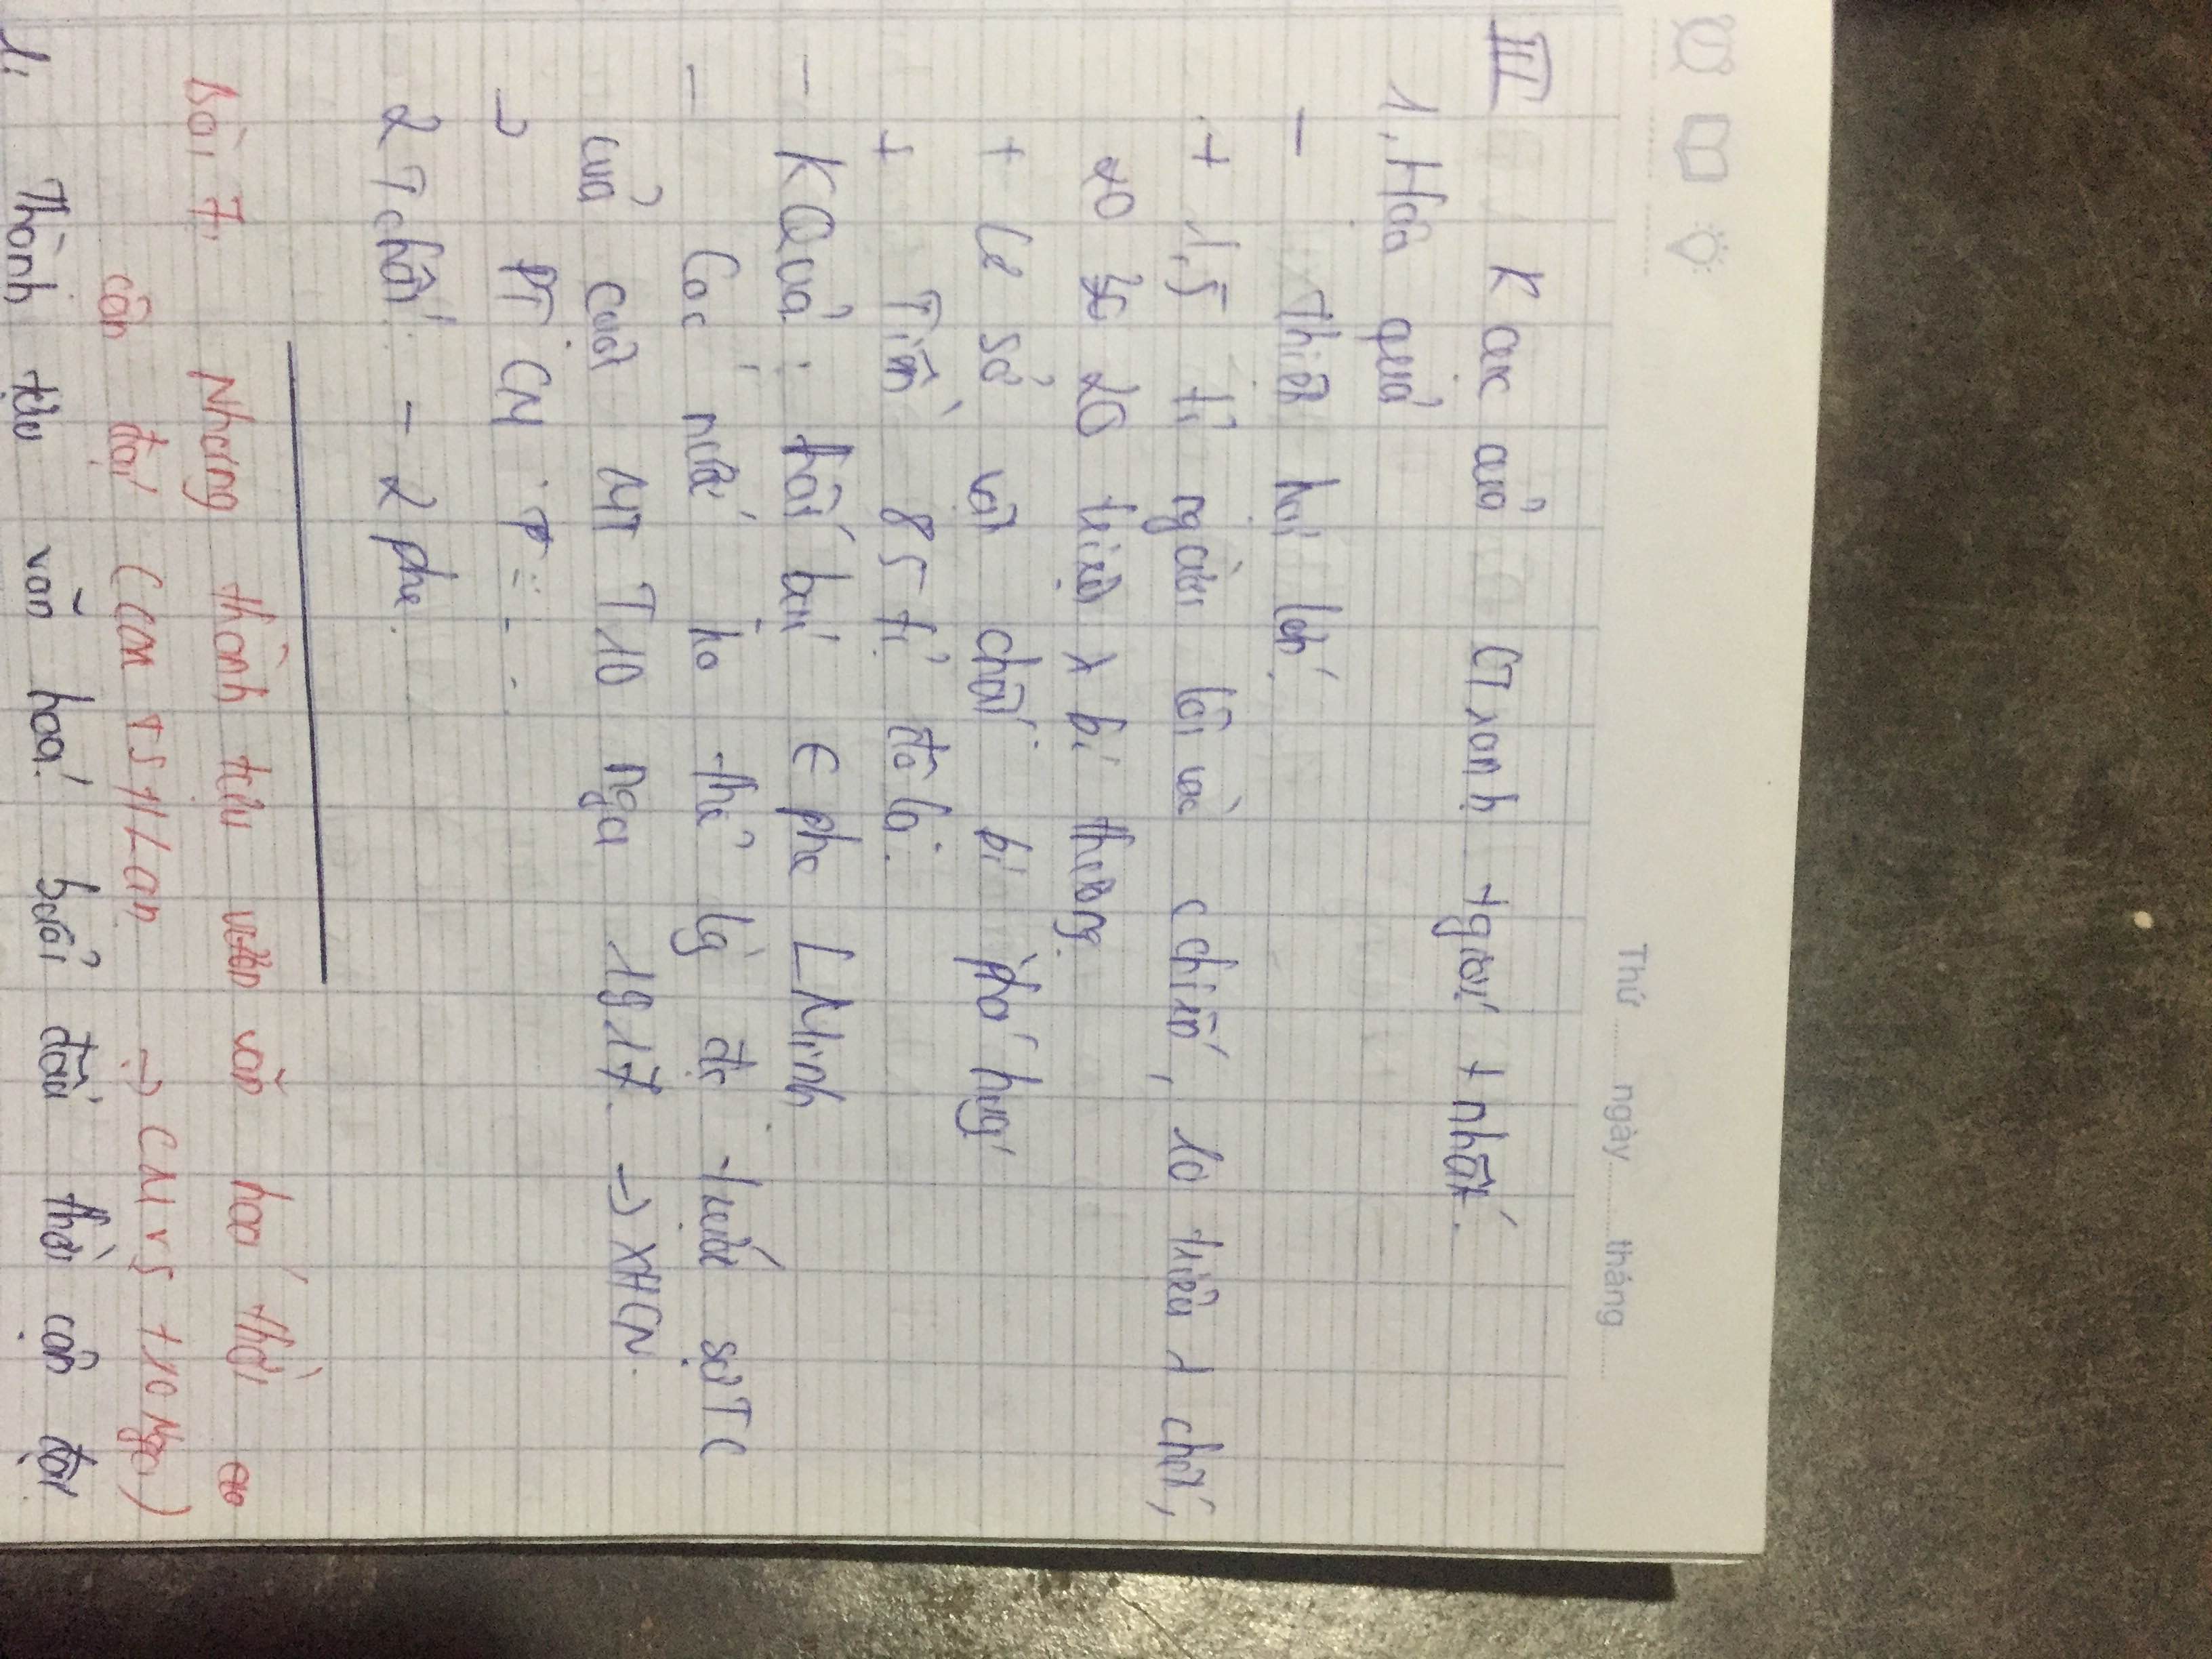 Thứ ........ ngày ........ tháng ........
III K cục của CTranh tgiới t nhất.
1, Hậu quả
- Thiệt hại lớn.
+ 1,5 tỉ người lôi vào cchiến, 10 triệu chết,
20 triệu bị thương.
+ Cơ sở vật chất bị phá huỷ
+ Tiền 85 tỉ đô la.
- KQuả: thất bại phe LMinh
- Các nước ko thể lg đc trước sự TC
của cuộc MT T10 nga 1917 → XHCN.
→ PT CM
2 T chất: - 2 phe.
Bài 7: Nhưng thành tựu văn hoá thời
cận đại (CM TS HLan → CM v5 t10 Nga)
1. Thành tựu văn hoá buổi đầu thời cận đại